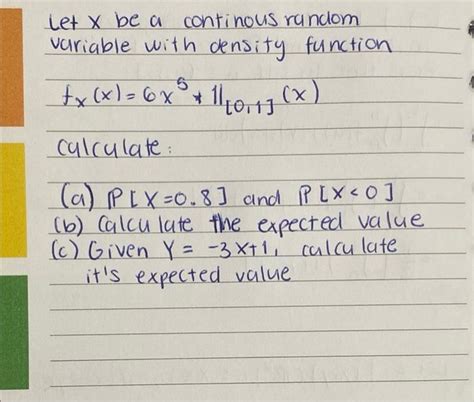 Let x be a continous random
variable with density function
fx (x) = 6x⁵ * 1l[0,1] (x)
calculate:
(a) P[X=0.8] and P[X<0]
(b) Calculate the expected value
(c) Given Y = -3x+1, calculate
it's expected value